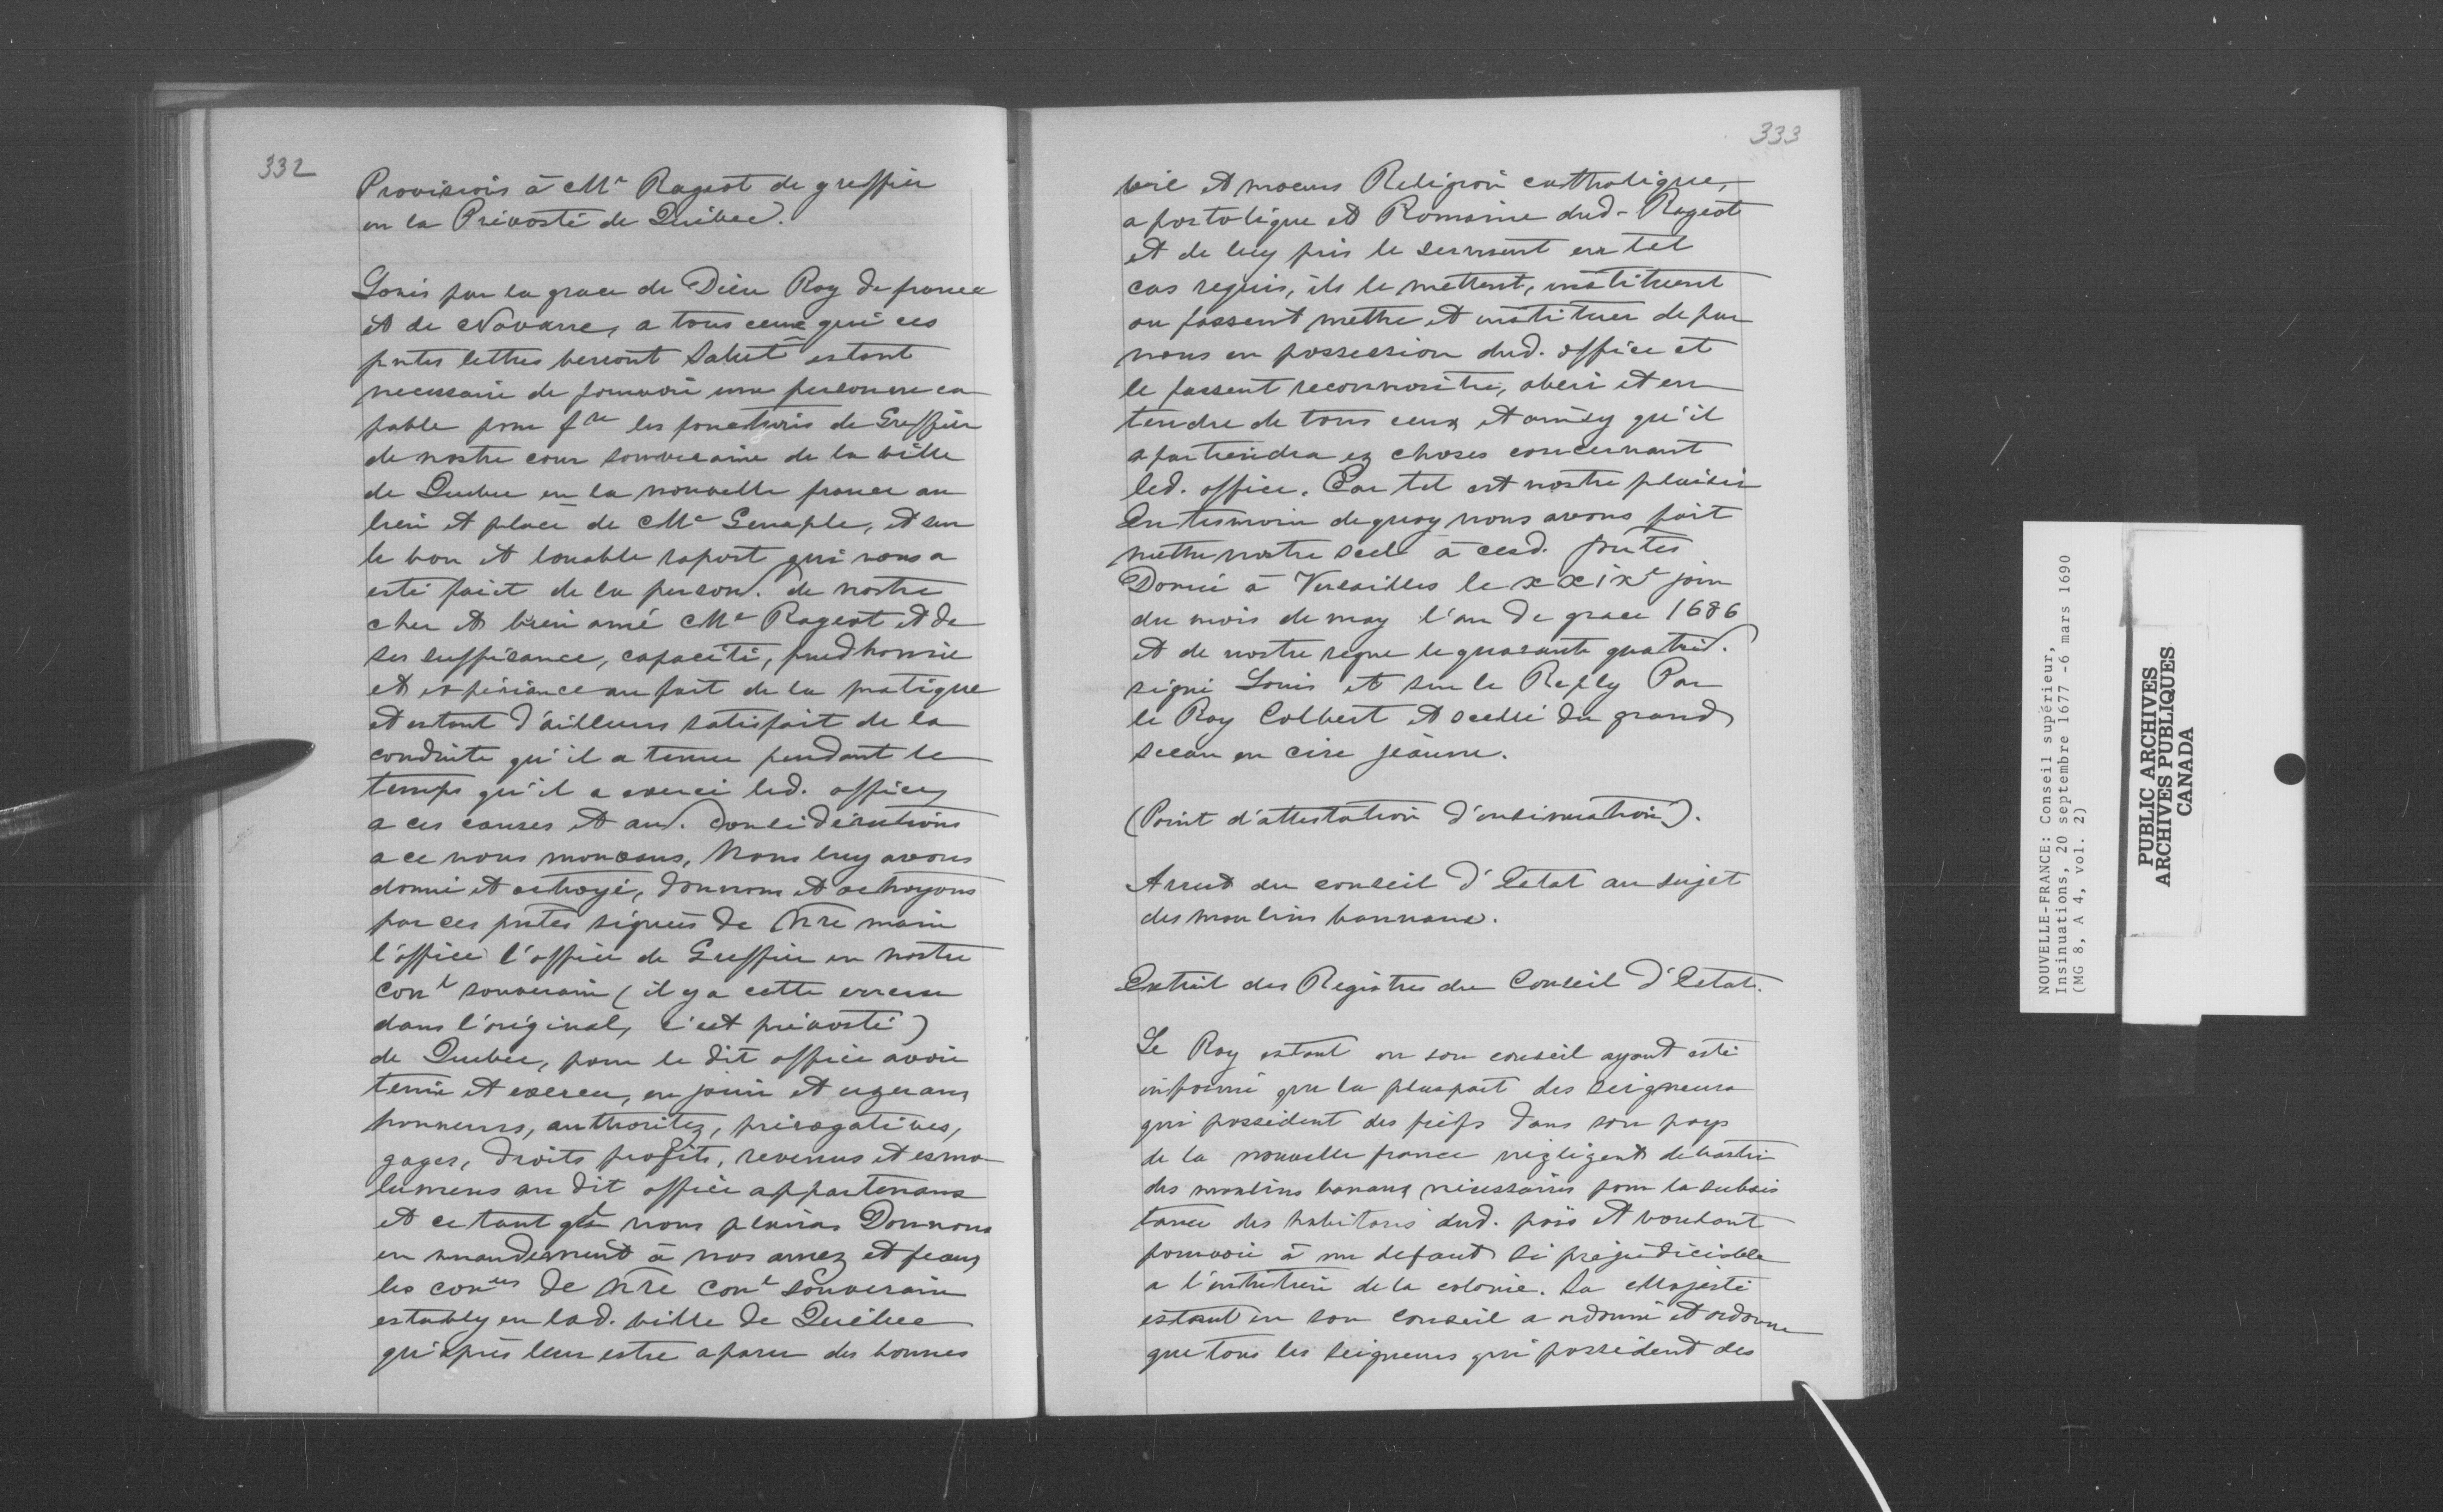 332
Provisions à Me Rageot de greffier
en la Prévosté de Québec.
Louis par la grace de Dieu Roy de france
et de Navarre, a tous ceux qui ces
pntes lettres verront Salut estant
necessaire de pourvoir une personne ca
pable pour fre les fonctions de Greffier
de nostre cour souveraine de la ville
de Quebec en la nouvelle france au
lieu et place de Me Genaple, et sur
le bon et louable raport qui nous a
esté fait de la person. de nostre
cher et bien amé Me Rageot et de
ses suffisance, capacité, prudhomie
et expériance au fait de la pratique
et estant d'ailleurs satisfait de la
conduite qu'il a tenue pendant le
temps qu'il a exercé led. office,
a ces causes et au. considérations
a ce nous mouvans, Nous luy avons
donné et octroyé, donnons et octroyons
par ces pntes signées de Nre main
l'office l'office de Greffier en nostre
conl souverain (il y a cette erreur
dans l'original, c'est prévosté)
de Quebec, pour le dit office avoir
tenir et exercer, en jouir et uzer aux
honneurs, authoritez, prérogatives,
gages, droits profits, revenus et esmo
lumens au dit office appartenans
et ce tant qu'il nous plaira Donnons
en mandement à nos amez et feaux
les coners de Nre conl Souverain
estably en lad. ville de Québec
qu'après leur estre aparu des bonnes
333
vie et moeurs Religion catholique,
apostolique et Romaine dud. Rageot
et de luy pris le serment en tel
cas requis, ils le mettent, instituent
ou fassent mettre et instituer de par
nous en possession dud. office et
le fassent reconnoitre, obeir et en
tendre de tous ceux et ainsy qu'il
apartiendra ez choses concernant
led. office. Car tel est nostre plaisir
En tesmoin de quoy nous avons fait
mettre nostre scel à cesd. pntes
Donné à Versailles le xxixe jour
du mois de may l'an de grace 1686
et de nostre regne le quarante quatrie.
signé Louis et sur le Reply Par
le Roy Colbert et scellé du grand
sceau en cire jeaune.
(Point d'attestation d'insinuation).
Arrest du conseil d'Estat au sujet
des moulins bannaux.
Extrait des Registres du Conseil d'Estat.
Le Roy estant en son conseil ayant esté
informé que la pluspart des seigneurs
qui possèdent des fiefs dans son pays
de la nouvelle france négligent de bastir
des moulins banaux nécessaires pour la subsis
tance des habitans dud. païs et voulant
pourvoir à un defaut si préjudiciable
a l'entretien de la colonie. Sa Majesté
estant en son conseil a ordonné et ordonne
que tous les seigneurs qui possèdent des
NOUVELLE-FRANCE: Conseil supérieur,
Insinuations, 20 septembre 1677 -6 mars 1690
(MG 8, A 4, vol. 2)
PUBLIC ARCHIVES
ARCHIVES PUBLIQUES
CANADA